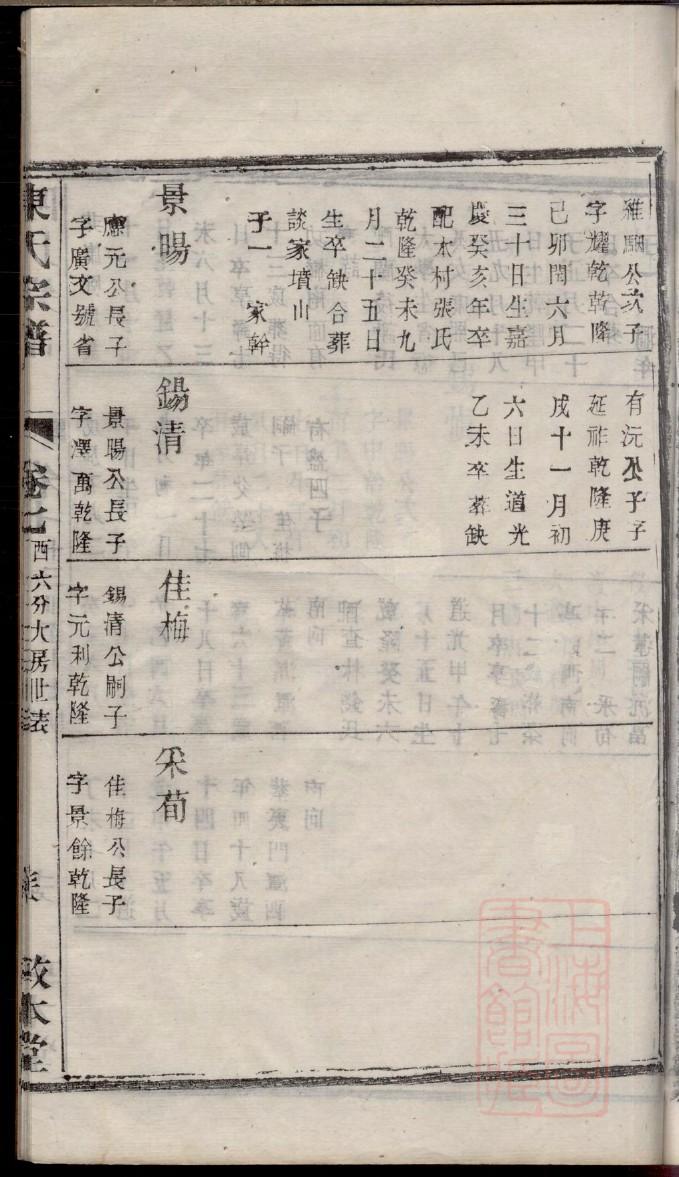 雅駉公次子
字耀乾乾隆
己卯閏六月
三十日生嘉
慶癸亥年卒
配本村張氏
乾隆癸未九
月二十五日
生卒缺合葬
談家墳山
子一　家幹
景暘
應元公長子
字廣文號省
有沅公子子
延祚乾隆庚
戌十一月初
六日生道光
乙未卒葬缺
錫清
景暘公長子
字澤萬乾隆
佳梅
錫清公嗣子
字元利乾隆
采荀
佳梅公長子
字景餘乾隆
陳氏宗譜
卷七
西六分大房世表
敦本堂
上海圖書館藏